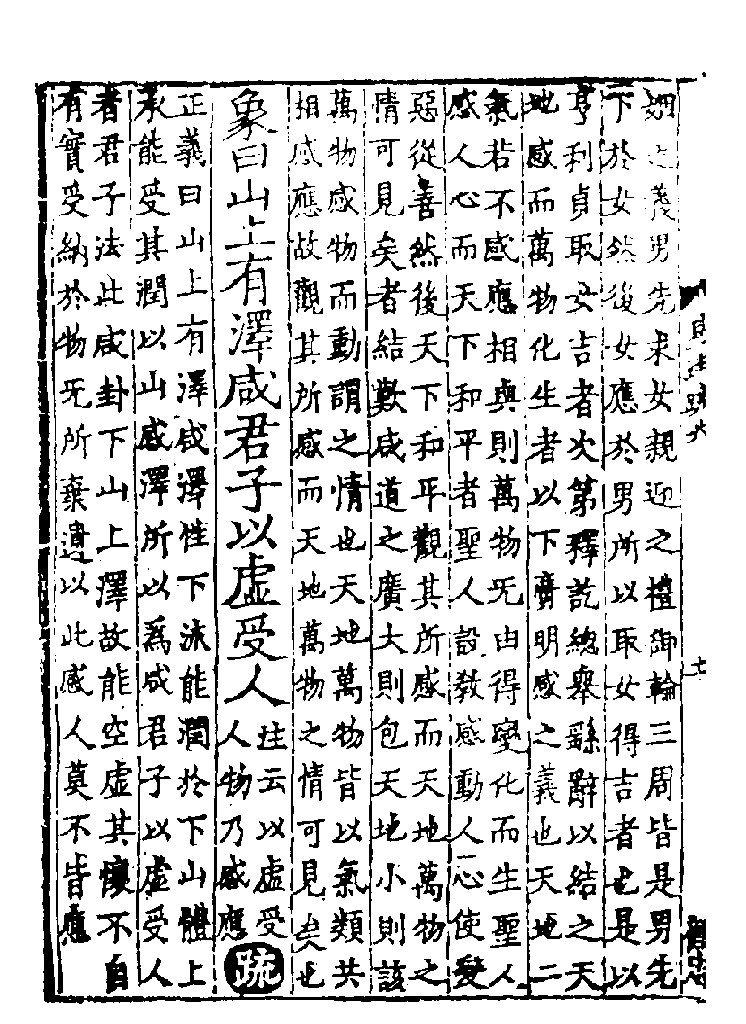 姻之義男先求女親迎之禮御輪三周皆是男先
下於女然後女應於男所以取女得吉者也是以
亨利貞取女吉者次第釋訖總舉繇辭以結之天
地感而萬物化生者以下廣明感之義也天地二
氣若不感應相與則萬物无由得變化而生聖人
感人心而天下和平者聖人設敎感動人心使變
惡從善然後天下和平觀其所感而天地萬物之
情可見矣者結歎咸道之廣大則包天地小則該
萬物感物而動謂之情也天地萬物皆以氣類共
相感應故觀其所感而天地萬物之情可見矣也
象曰山上有澤咸君子以虛受人
注云以虛受
人物乃感應
疏
正義曰山上有澤咸澤性下流能潤於下山體上
承能受其潤以山感澤所以爲咸君子以虛受人
者君子法此咸卦下山上澤故能空虛其懷不自
有實受納於物无所棄遺以此感人莫不皆應